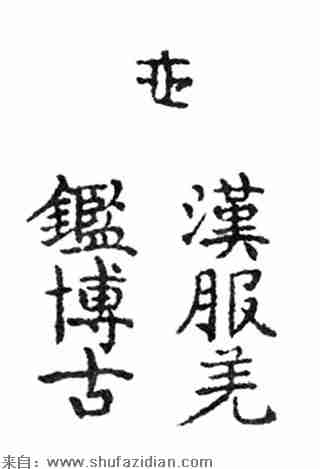 漢服羌
鑑博古
来自：www.shufazidian.com